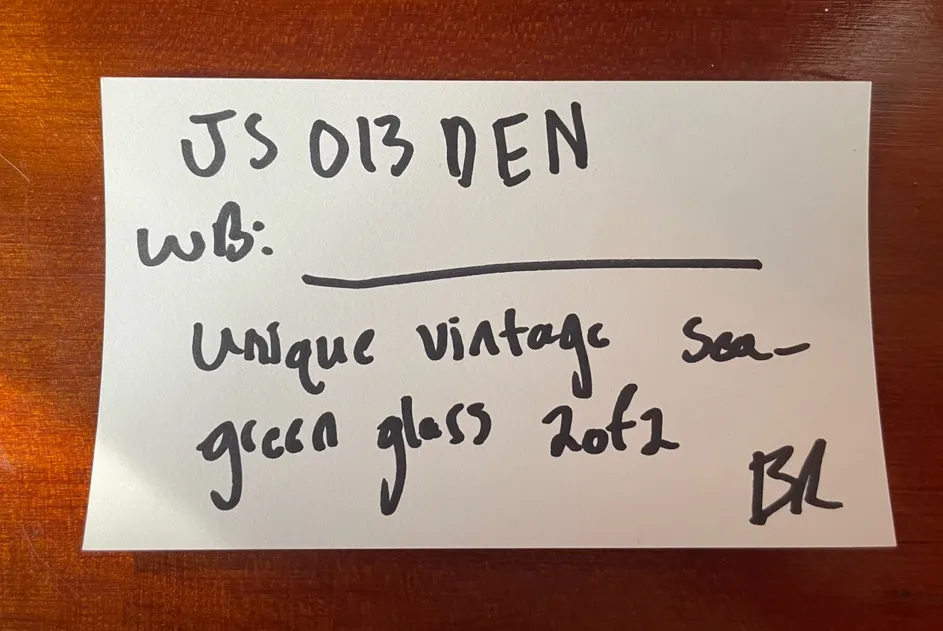 JS 013 DEN
WB: ___________
unique vintage sea-
green glass 2 of 2
BR